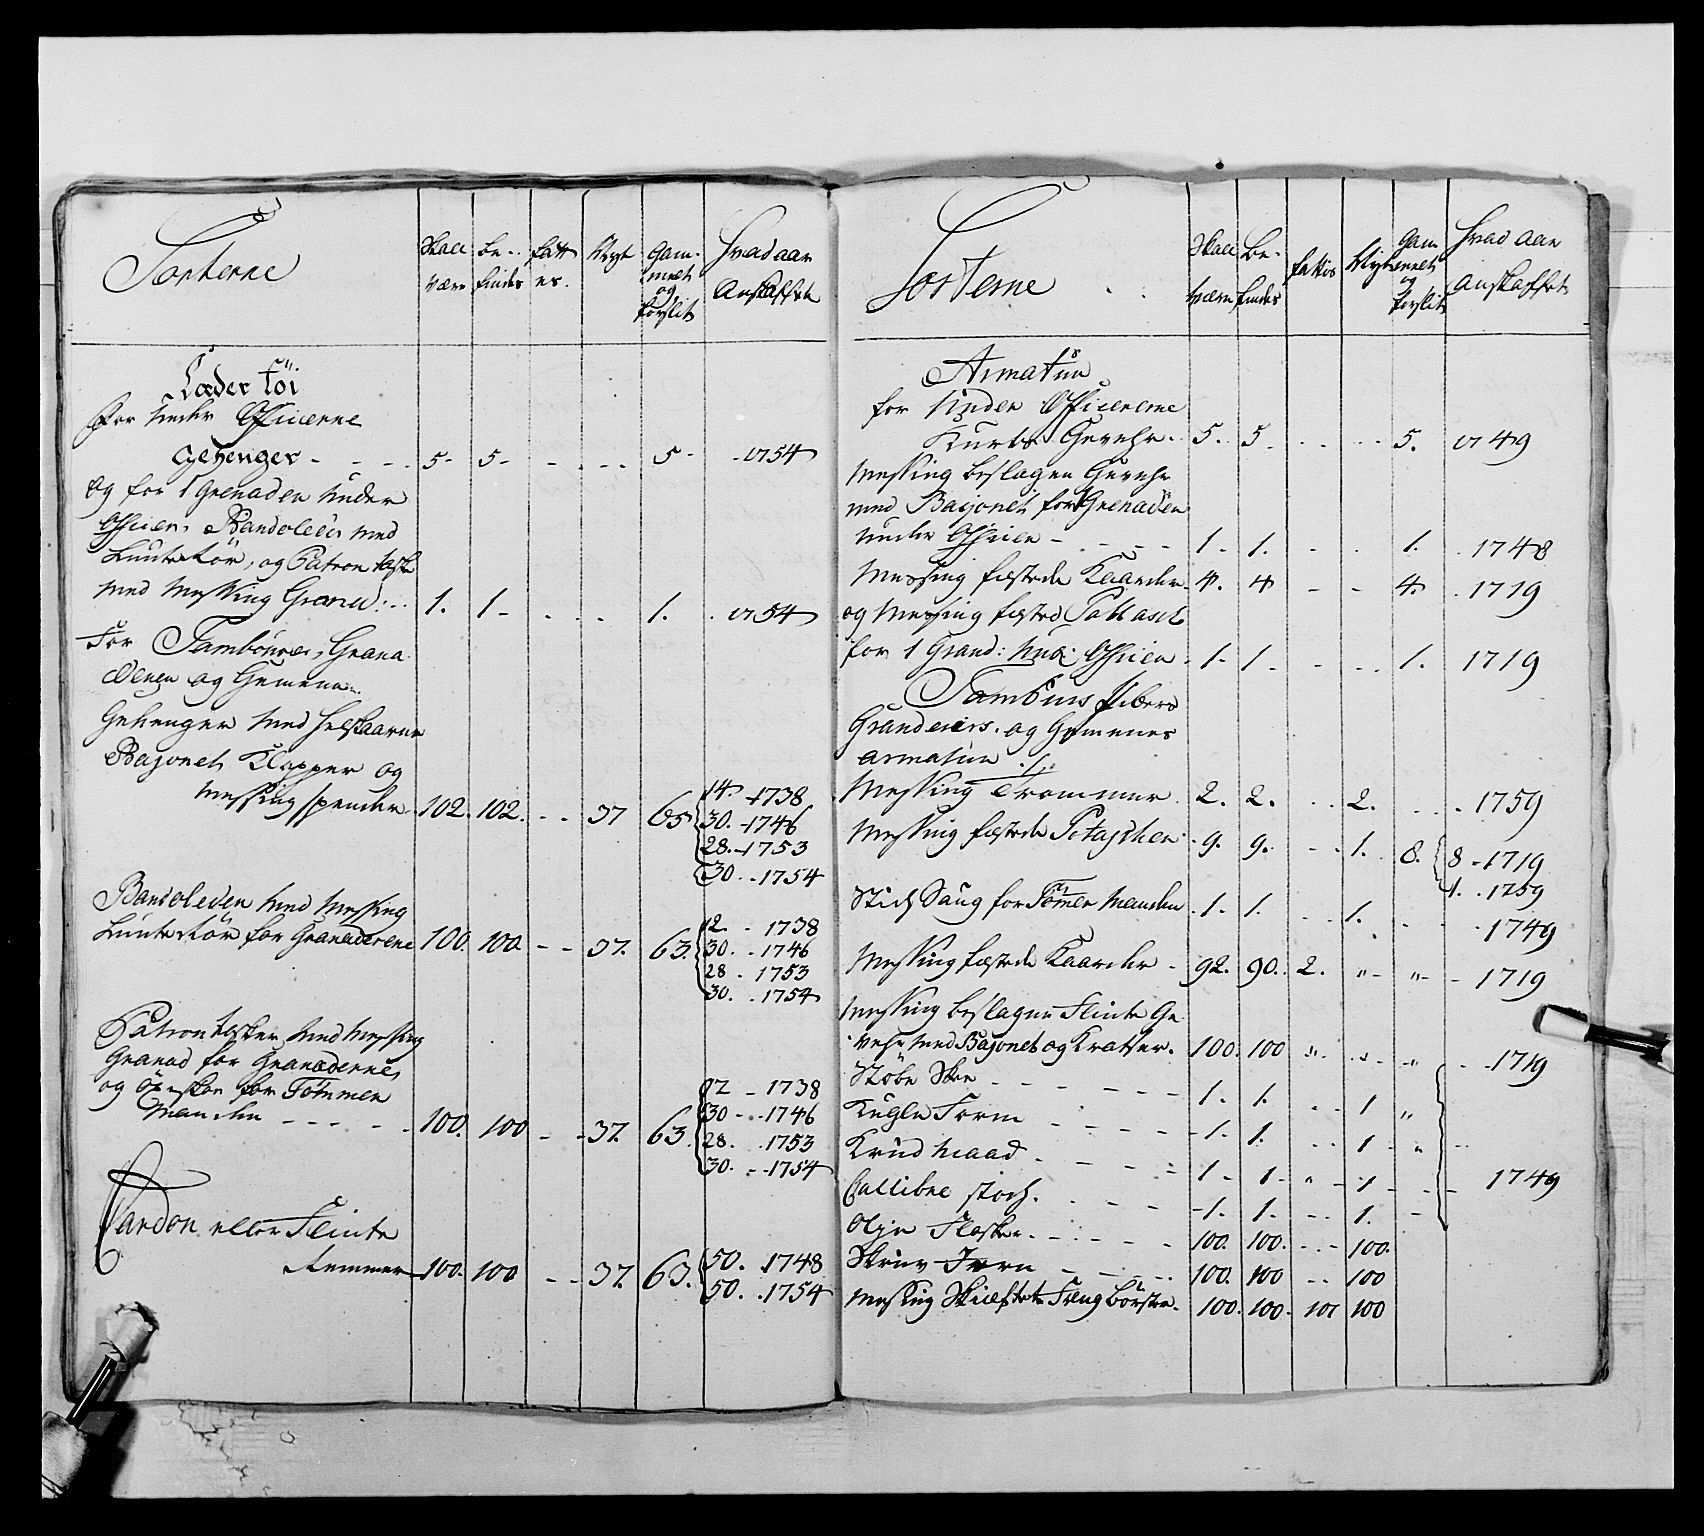 Sorterne
Skall være
Be- findes
fatt es.
Nyt
Gam- melt og forslit
Hvad aar Anskaffet
Læder töi
For Under Officerne
Gehenger - - - - 5- 5- - - - - 5- - 1754
og for 1 Grenader Under
Officer, Bandoleer med
Lunte Rör, og Patron taske
med Messing Granad: .. 1. 1 - . . . 1. . 1754
For Tambourer, Grana
derer og Gemene
Gehenger med
Bajonet Klapper og
Messing Spender 102. 102. - - 37 65 { 14. - 1738
30. - 1746
28. - 1753
30. - 1754
Bandoleren med Messing
Lunte Rör for Granaderene 100. 100. - - 37. 63. { 12. - 1738
30. - 1746
28 - 1753
30. - 1754
Patron tasker med Messing
Granad for Granadernes
og for Tömmer
Manden - - - - - 100. 100 - - 37. 63. { 12 - 1738
30 - - 1746
28. . 1753
30. - 1754
eller Flinte
Remmer 100. 100 - - 37. 63. { 50. . 1748
50. . 1754
Sorterne . .
Skall være
Be- findes
fattes
Nyt
Gam emelt og forslit
Hvad Aar Anskaffet
Armatur
for Under Officererne
Kurtz Gevehr. 5. 5 - . . . . 5. 1749
Messing beslagen Gevehr
med Bajonet for 1 Grenader
Under Officer - - - - 1. 1. - . . 1. . 1748
Messing fæstede Kaarder 4. 4 - - 4. . 1719
og Messing fæstede Pallasch
for 1 Grand: Und: Officer . 1. 1. - - . . 1. 1719
Tambours Pibers
Grandeiers. og Gemenes
Armatur
Messing Trommer . 2. 2. . . 2. - - 1759
Messing fæstede . 9. 9. - - 1. . 8. { 8 - 1719
1. . 1759
Stick Saug for Tömer Manden . 1. 1. . . 1. . - . 1749
Messing fæstede Kaarder - 92. 90. 2. " - " - - 1719
Messing beslagen Flinte Ge
vehr med Bajonet og Kratser. 100. 100 " . " - " - . 1749
Stöbe Skee - - - - - - 1. 1. . . 1 "
Kugle Form - - - - - 1. 1. . . 1 - "
Krud Maad - - - - 1 - 1 - " - 1
Callibre stock. - - - - 1. 1. - . 1. - 1749
Olje Flasker. - . - . - . 100. 100. - . - 100.
Skrue Jern - - - . . 100. 100 - - 100
Messing Skiæftet Feng börster. 100. 100. 100